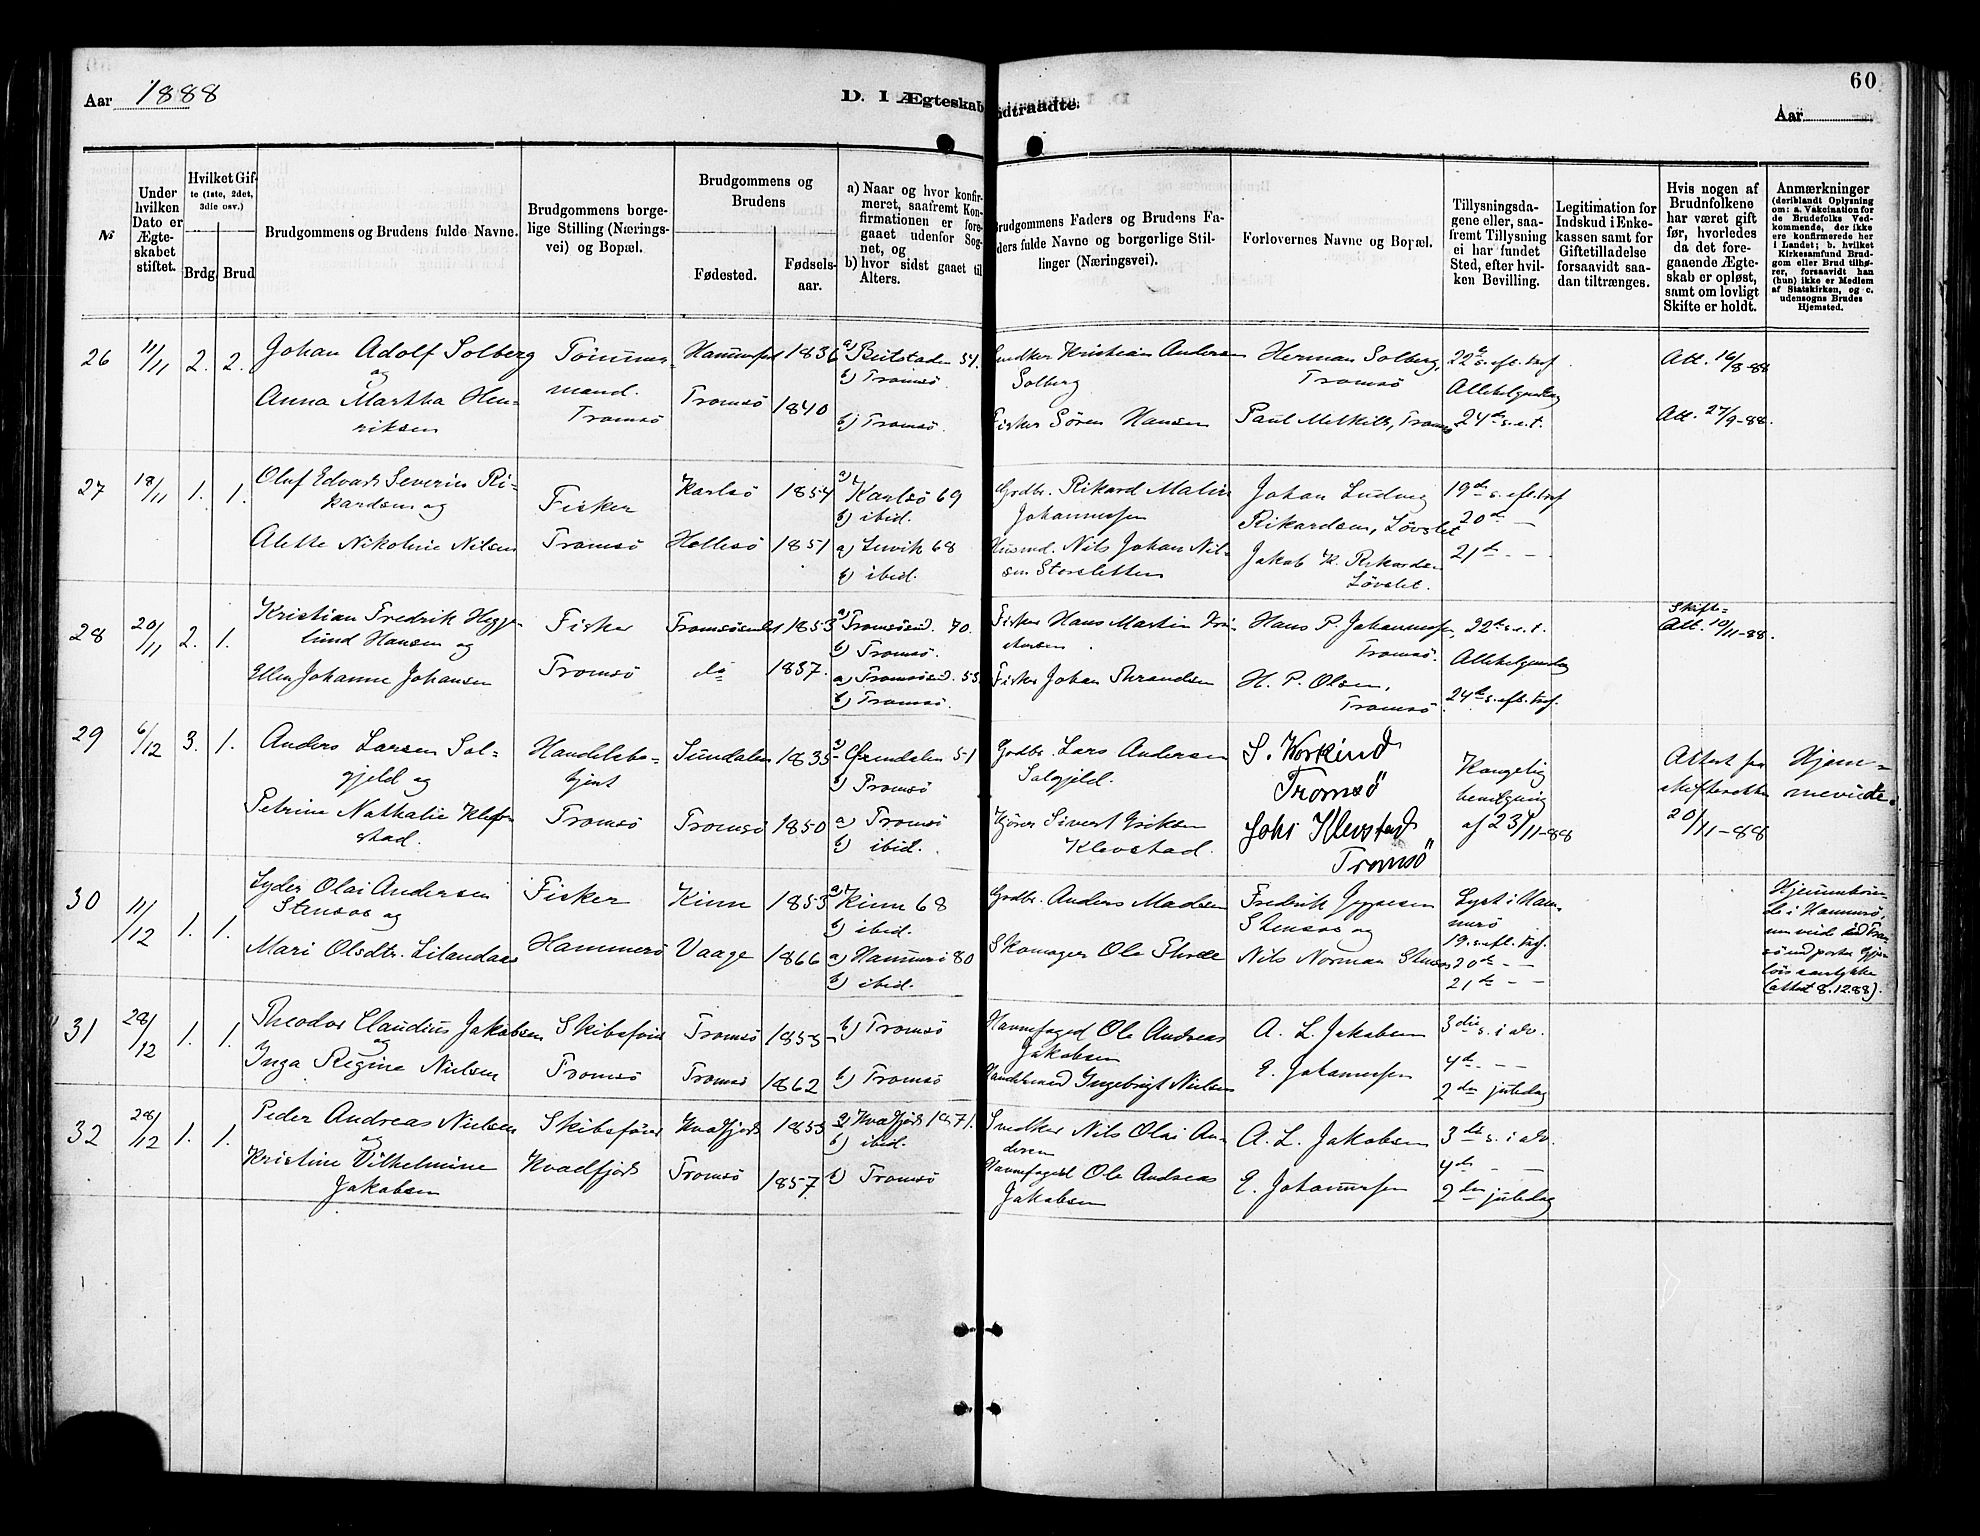 60
Aar 1888
D. 1 Ægteskab indtraadte.
Aar
№
Under hvilken Dato er Ægteskabet stiftet.
Hvilket Gifte (1ste, 2det, 3die osv.)
Brdg. Brud
Brudgommens og Brudens fulde Navne.
Brudgommens borgelige Stilling (Næringsvei) og Bopæl.
Brudgommens og Brudens
Fødested.
Fødselsaar.
a) Naar og hvor konfirmeret, saafremt Konfirmationen er foregaaet udenfor Sognet, og
b) hvor sidst gaaet til Alters.
Brudgommens Faders og Brudens Faders fulde Navne og borgerlige Stillinger (Næringsvei).
Forlovernes Navne og Bopæl.
Tillysningsdagene eller, saafremt Tillysning ei har fundet Sted, efter hvilken Bevilling.
Legitimation for Indskud i Enkekassen samt for Giftetilladelse forsaavidt saadan tiltrænges.
Hvis nogen af Brudnfolkene har været gift før, hvorledes da det foregaaende Ægteskab er opløst, samt om lovligt Skifte er holdt.
Anmærkninger
(deriblandt Oplysning om: a. Vakcination for de Brudefolks Vedkommende, der ikke ere konfirmerede her i Landet; b. hvilket Kirkesamfund Brudgom eller Brud tilhører, forsaavidt han (hun) ikke er Medlem af Statskirken, og c. udensogns Brudes Hjemsted.
26 11/11 2. 2. Johan Adolf Solberg
og
Anna Martha Henriksen
Tømmermand.
Tromsø
Hammerfest 1836
Tromsø 1840
a) Beitstaden 51.
b) Tromsø
b) Tromsø.
Kristian Andersen
Solberg
Fisker Søren Hansen
Herman Solberg,
Tromsø
Paul Tromsø
22de s. eft. tref.
Allehelgensdag
24de s. e. t.
Att. 16/8-88
Att. 27/9-88.
27 18/11 1. 1. Oluf Edvard Severin Rikardsen og
Alette Nikoline Nilsen
Fisker
Tromsø
Karlsø 1854
Hellesø 1851
a) Karlsø 69
b) ibid.
a) Lenvik 68
b) ibid.
Grdbr. Rikard Malin
Johannessen
Husmd. Nils Johan Nilsen Storsletten
Johan Ludvig
Rikardsen, Løvslet
Jakob Rikardsen
Løvslet.
19de s. eft. tref
20de —
21de - -
28 20/11 2. 1. Kristian Fredrik Heggelund Hansen og
Ellen Johanne Johansen
Fisker
Tromsø
Tromsøsundet 1853
do 1837.
a) Tromsøsd. 70.
b) Tromsø.
a) Tromsøsd. 55
b) Tromsø.
Fisker Hans Martin Kristensen
Fisker Johan Thrandsen
Hans P. Johannesen,
Tromsø.
H. P. Olsen,
Tromsø
22de s. e. t.
Allehelgensdag
24de s. eft. tref.
Skifte-
Att. 10/11-88.
29 6/12 3. 1. Anders Larsen Solgjeld og
Petrine Nathalie Klefstad.
Handelsbetjent
Tromsø
Sundalen 1835
Tromsø 1850
a) 51
b) Tromsø
a) Tromsø
b) ibid.
Grdbr. Lars Andersen
Solgjeld.
Sivert Eriksen
Klevstad.
S. Workind
Tromsö
Johs Klevstad
Tromsö
Kongelig
bevilgning
af 23/11-88
Attest fra
skifteretten
20/11-88
Hjemmeviede.
30 11/12 1. 1. Lyder Olai Andersen
Stensøe og
Mari Olsdtr. Lilandaas
Fisker
Hammerø
Kinn 1853
Vaage 1866
a) Kinn 68
b) ibid.
a) Hammerø 80
b) ibid.
Grdbr. Anders Madsen
Skomager Ole
Fredrik Jeppesen
Stensøe og
Nils Norman
Lyst i Hammerø
19. s. eft. tref.
20de - -
21de - -
(attest 8.12.88).
31 28/12 1. 1. Theodor Claudius Jakobsen
og
Inga Regine Nielsen
Skibsfører
Tromsø
Tromsø 1853
Tromsø 1862
b) Tromsø
b) Tromsø
Havnefoged Ole Andreas
Jakobsen
Handelsmand Ingebrigt Nielsen
A. L. Jakobsen
E. Johannessen
3die s. i adv.
4de - -
2den juledag
32 28/12 1. 1. Peder Andreas Nielsen
og
Kristine Vilhelmine
Jakobsen
Skibsfører
Kvadfjord
Kvadfjord 1853
Tromsø 1857
a) Kvadfjord 1871.
b) ibid.
b) Tromsø
Nils Olai Andersen
Havnefoged Ole Andreas
Jakobsen
A. L. Jakobsen
E. Johannessen
3die s. i adv.
4de - —
2den juledag